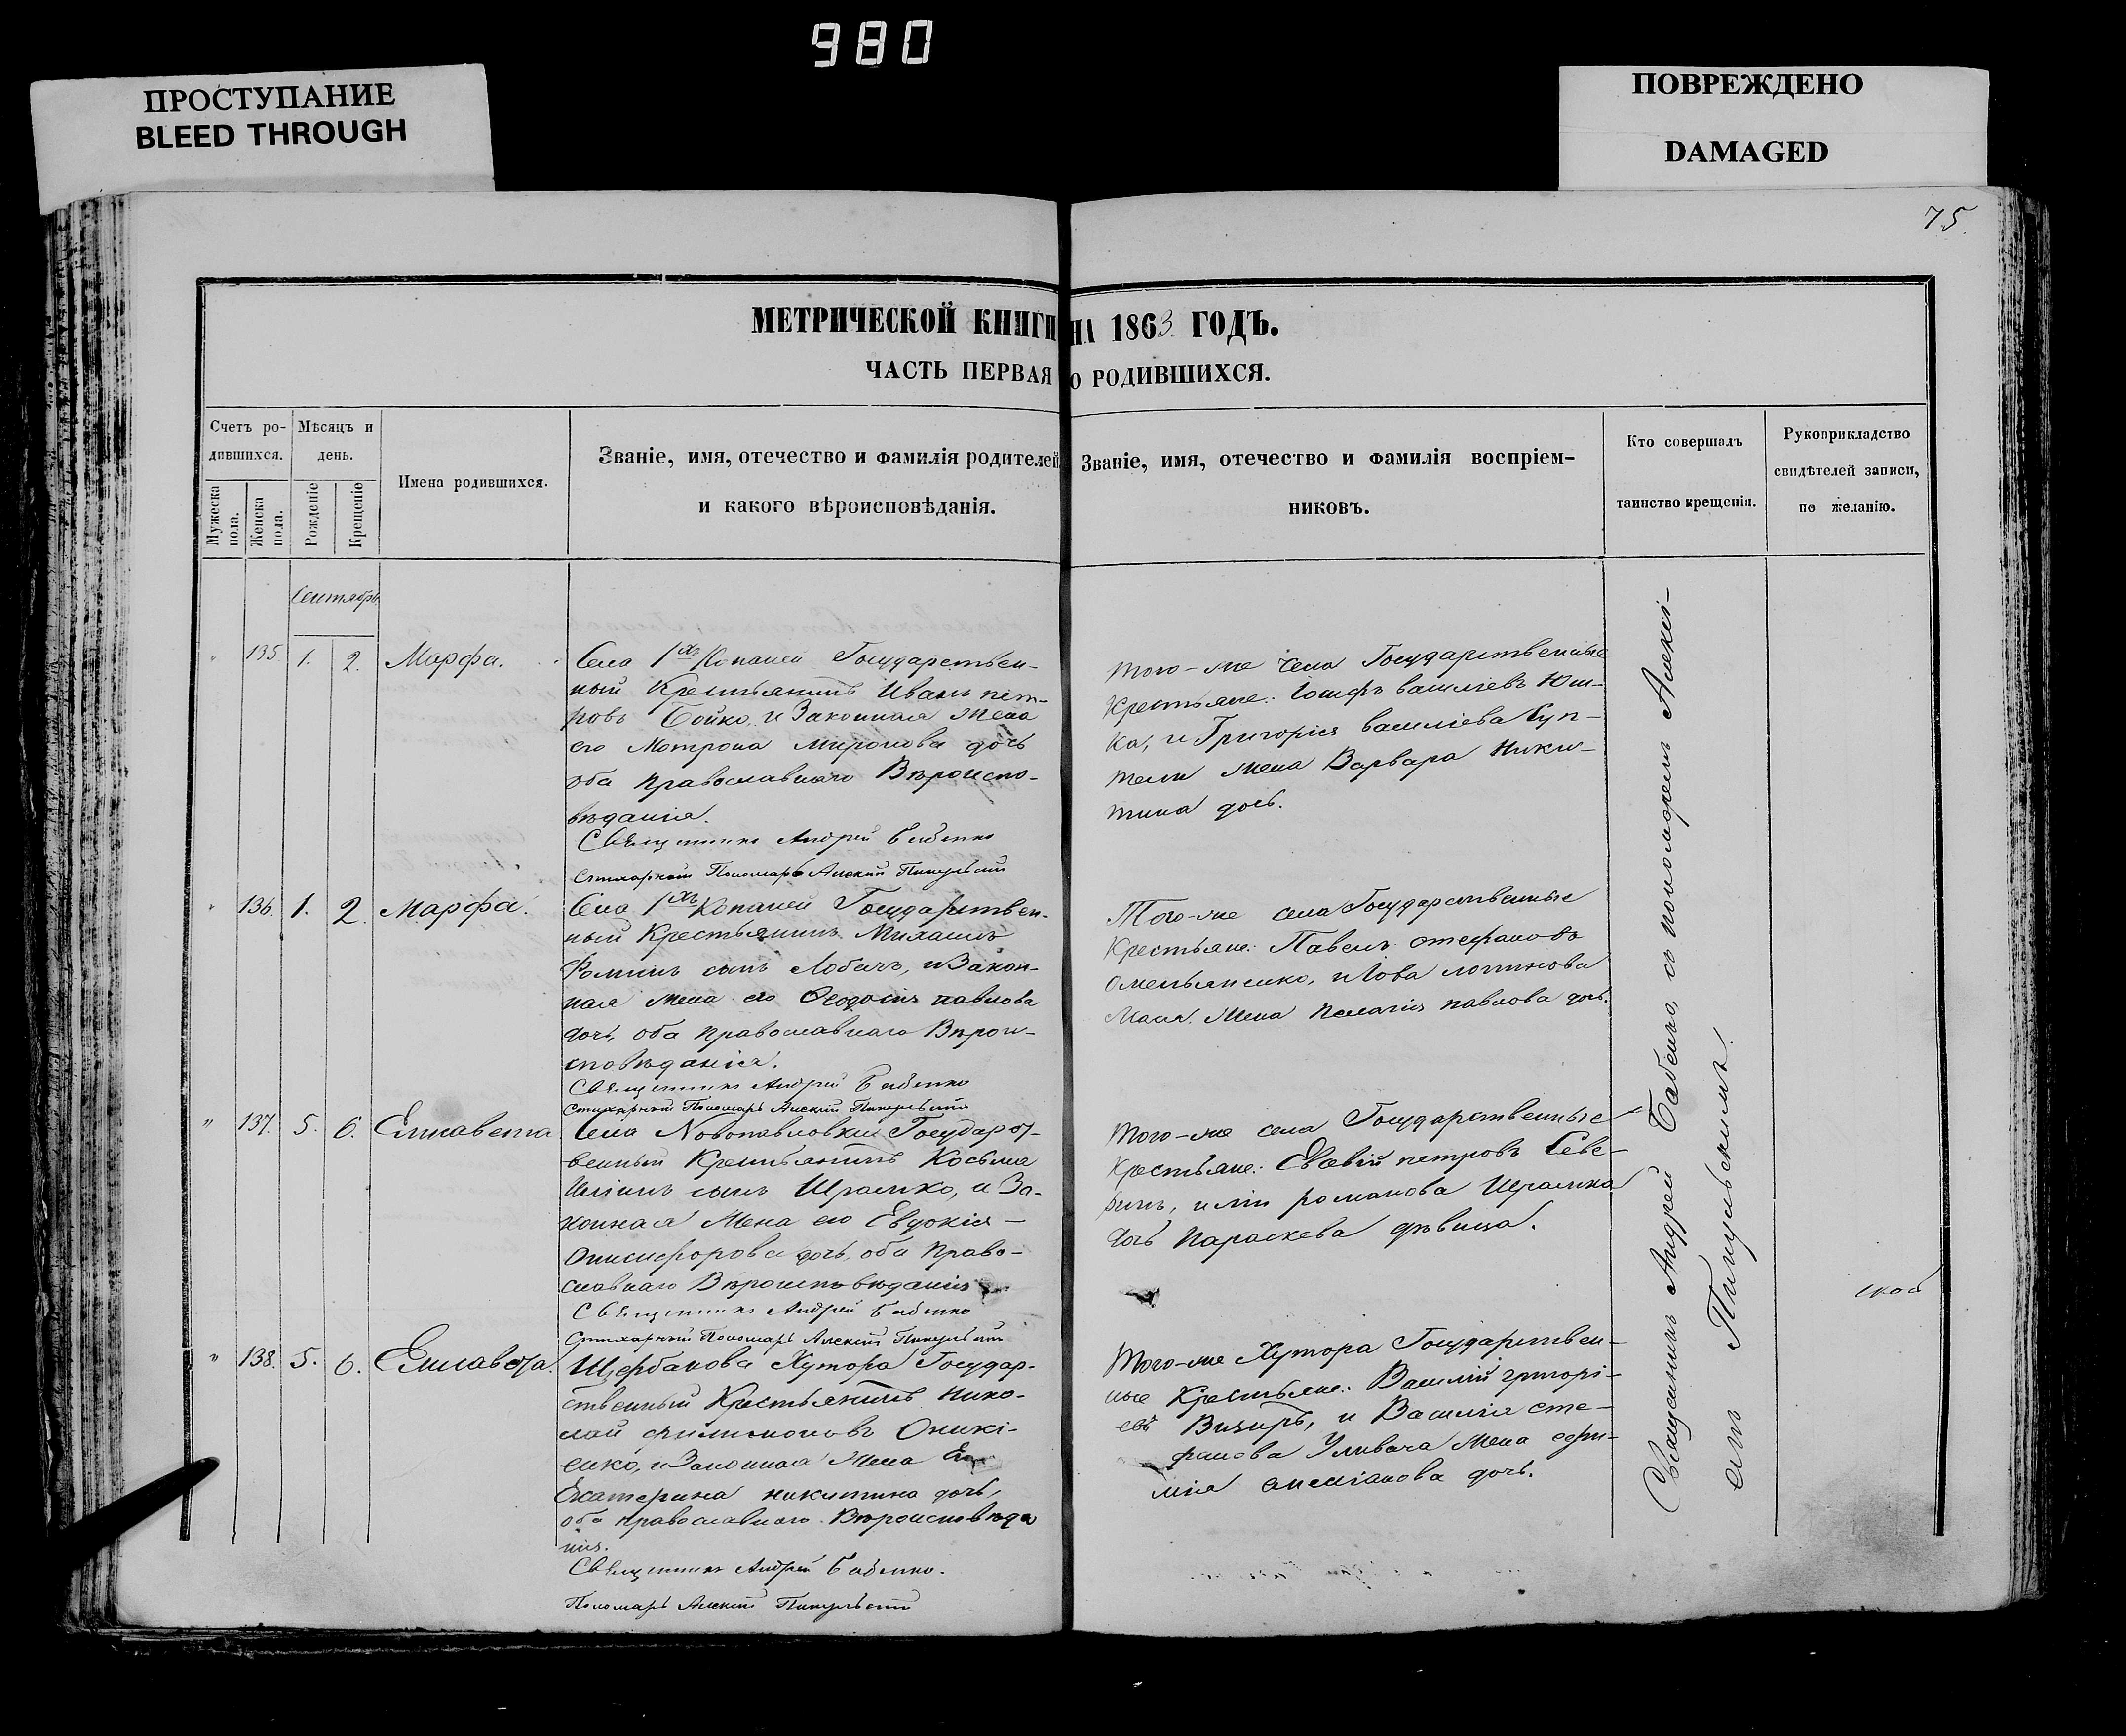 980
ПРОСТУПАНИЕ
BLEED THROUGH
ПОВРЕЖДЕНО
DAMAGED
75.
МЕТРИЧЕСКОЙ КНИГИ НА 1863 ГОДЪ.
ЧАСТЬ ПЕРВАЯ О РОДИВШИХСЯ.
Счетъ ро-
дившихся.
Мужеска
пола.
Женска
пола.
Мѣсяцъ и
день.
Рожденіе
Крещеніе
Имена родившихся.
Званіе, имя, отечество и фамилія родителей
и какого вѣроисповѣданія.
Званіе, имя, отечество и фамилія воспріем-
никовъ.
Кто совершалъ
таинство крещенія.
Рукоприкладство
свидѣтелей записи,
по желанію.
Сентябрь
" 135. 1. 2. Марфа.
Села 1хъ Копаней Государствен-
ный Крестьянинъ Иванъ пет-
ровъ Бойко, и Законная Жена
его Мотрона Миронова дочь
оба православнаго Вѣроиспо-
вѣданія.
Священникъ Андрей Бабенко
Стихарный Пономарь Алексій
того-же села Государственные
Крестьяне: Іосифъ васильевъ Юш-
ка, и Григорія василіева Суп-
тели жена Варвара Ники-
тина дочь.
" 136. 1. 2. Марфа.
Села 1хъ Копаней Государствен-
ный Крестьянинъ Михаилъ
Фоминъ сынъ Лобачъ, и Закон-
ная жена его Ѳеодосія павлова
дочь, оба православнаго Вѣрои-
сповѣданія.
Священникъ Андрей Бабенко
Стихарный Пономарь Алексій
Того-же села Государственные
Крестьяне: Павелъ стефановъ
Омельяненко, и Іова логинова
жена Пелагія павлова дочь.
" 137. 5. 6. Елисавета
Села Новопавловки Государст-
венный Крестьянинъ Косьма
Иліинъ сынъ Шрамко, и За-
конная Жена его Евдокія
Онисифорова дочь, оба Право-
славнаго Вѣроисповѣданія
Священникъ Андрей Бабенко
Стихарный Пономарь Алексій
Того-же села Государственные
Крестьяне: Евсевій петровъ Севе-
ринъ, и Иліи романова Шрамка
дочь Параскева дѣвица.
" 138. 5. 6. Елисавета.
Щербакова Хутора Государ-
ственный Крестьянинъ Нико-
лай филимоновъ Оникі-
енко, и Законная Жена
Екатерина никитина дочь,
оба православнаго Вѣроисповѣда
нія.
Священникъ Андрей Бабенко.
Пономарь Алексій
Того-же Хутора Государствен-
ные Крестьяне: Василій григорі-
евъ Визиръ, и Василія сте-
фанова Уливача жена ефи-
мія дочь.
Священникъ Андрей Бабенко, съ пономоремъ Алексі-
емъ